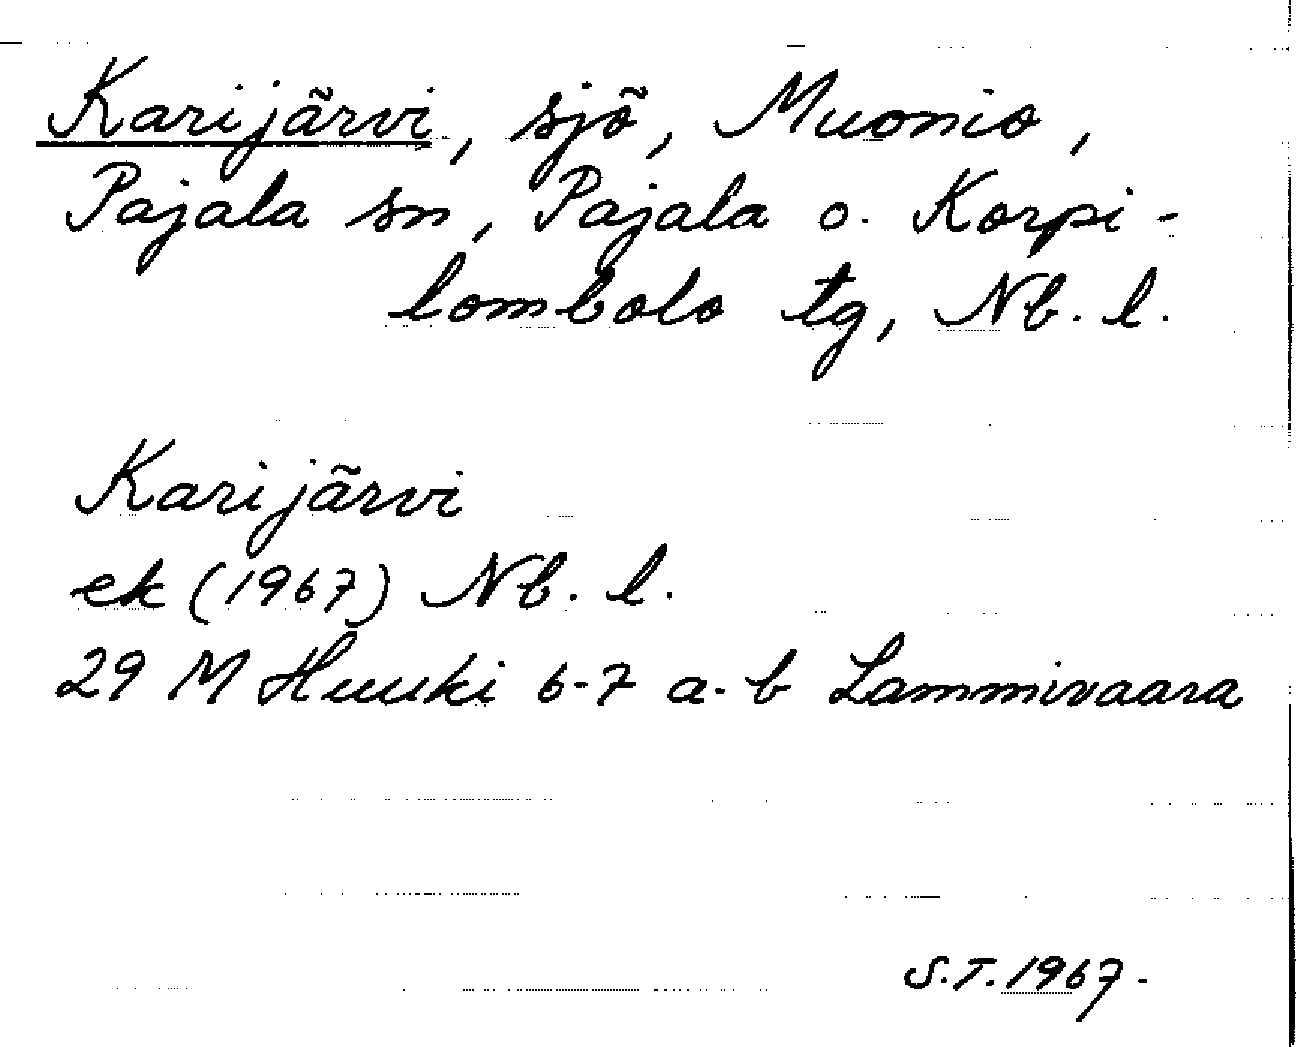 Karijärvi, sjö, Muonio,
Pajala sn, Pajala o. Korpi-
lombolo tg, Nb. l.
Karijärvi
ek (1967) Nb. l.
29 M Huuki 6-7 a-b Lammivaara
S.T. 1967.